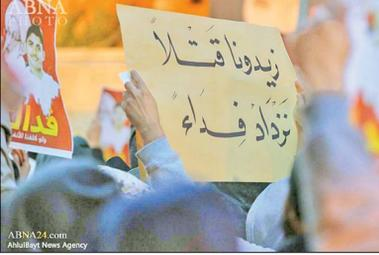 ABNA
PHOTO
زيدونا قتلاً
نزداد فِداءً
فداك
ABNA24.com
AhlulBayt News Agency